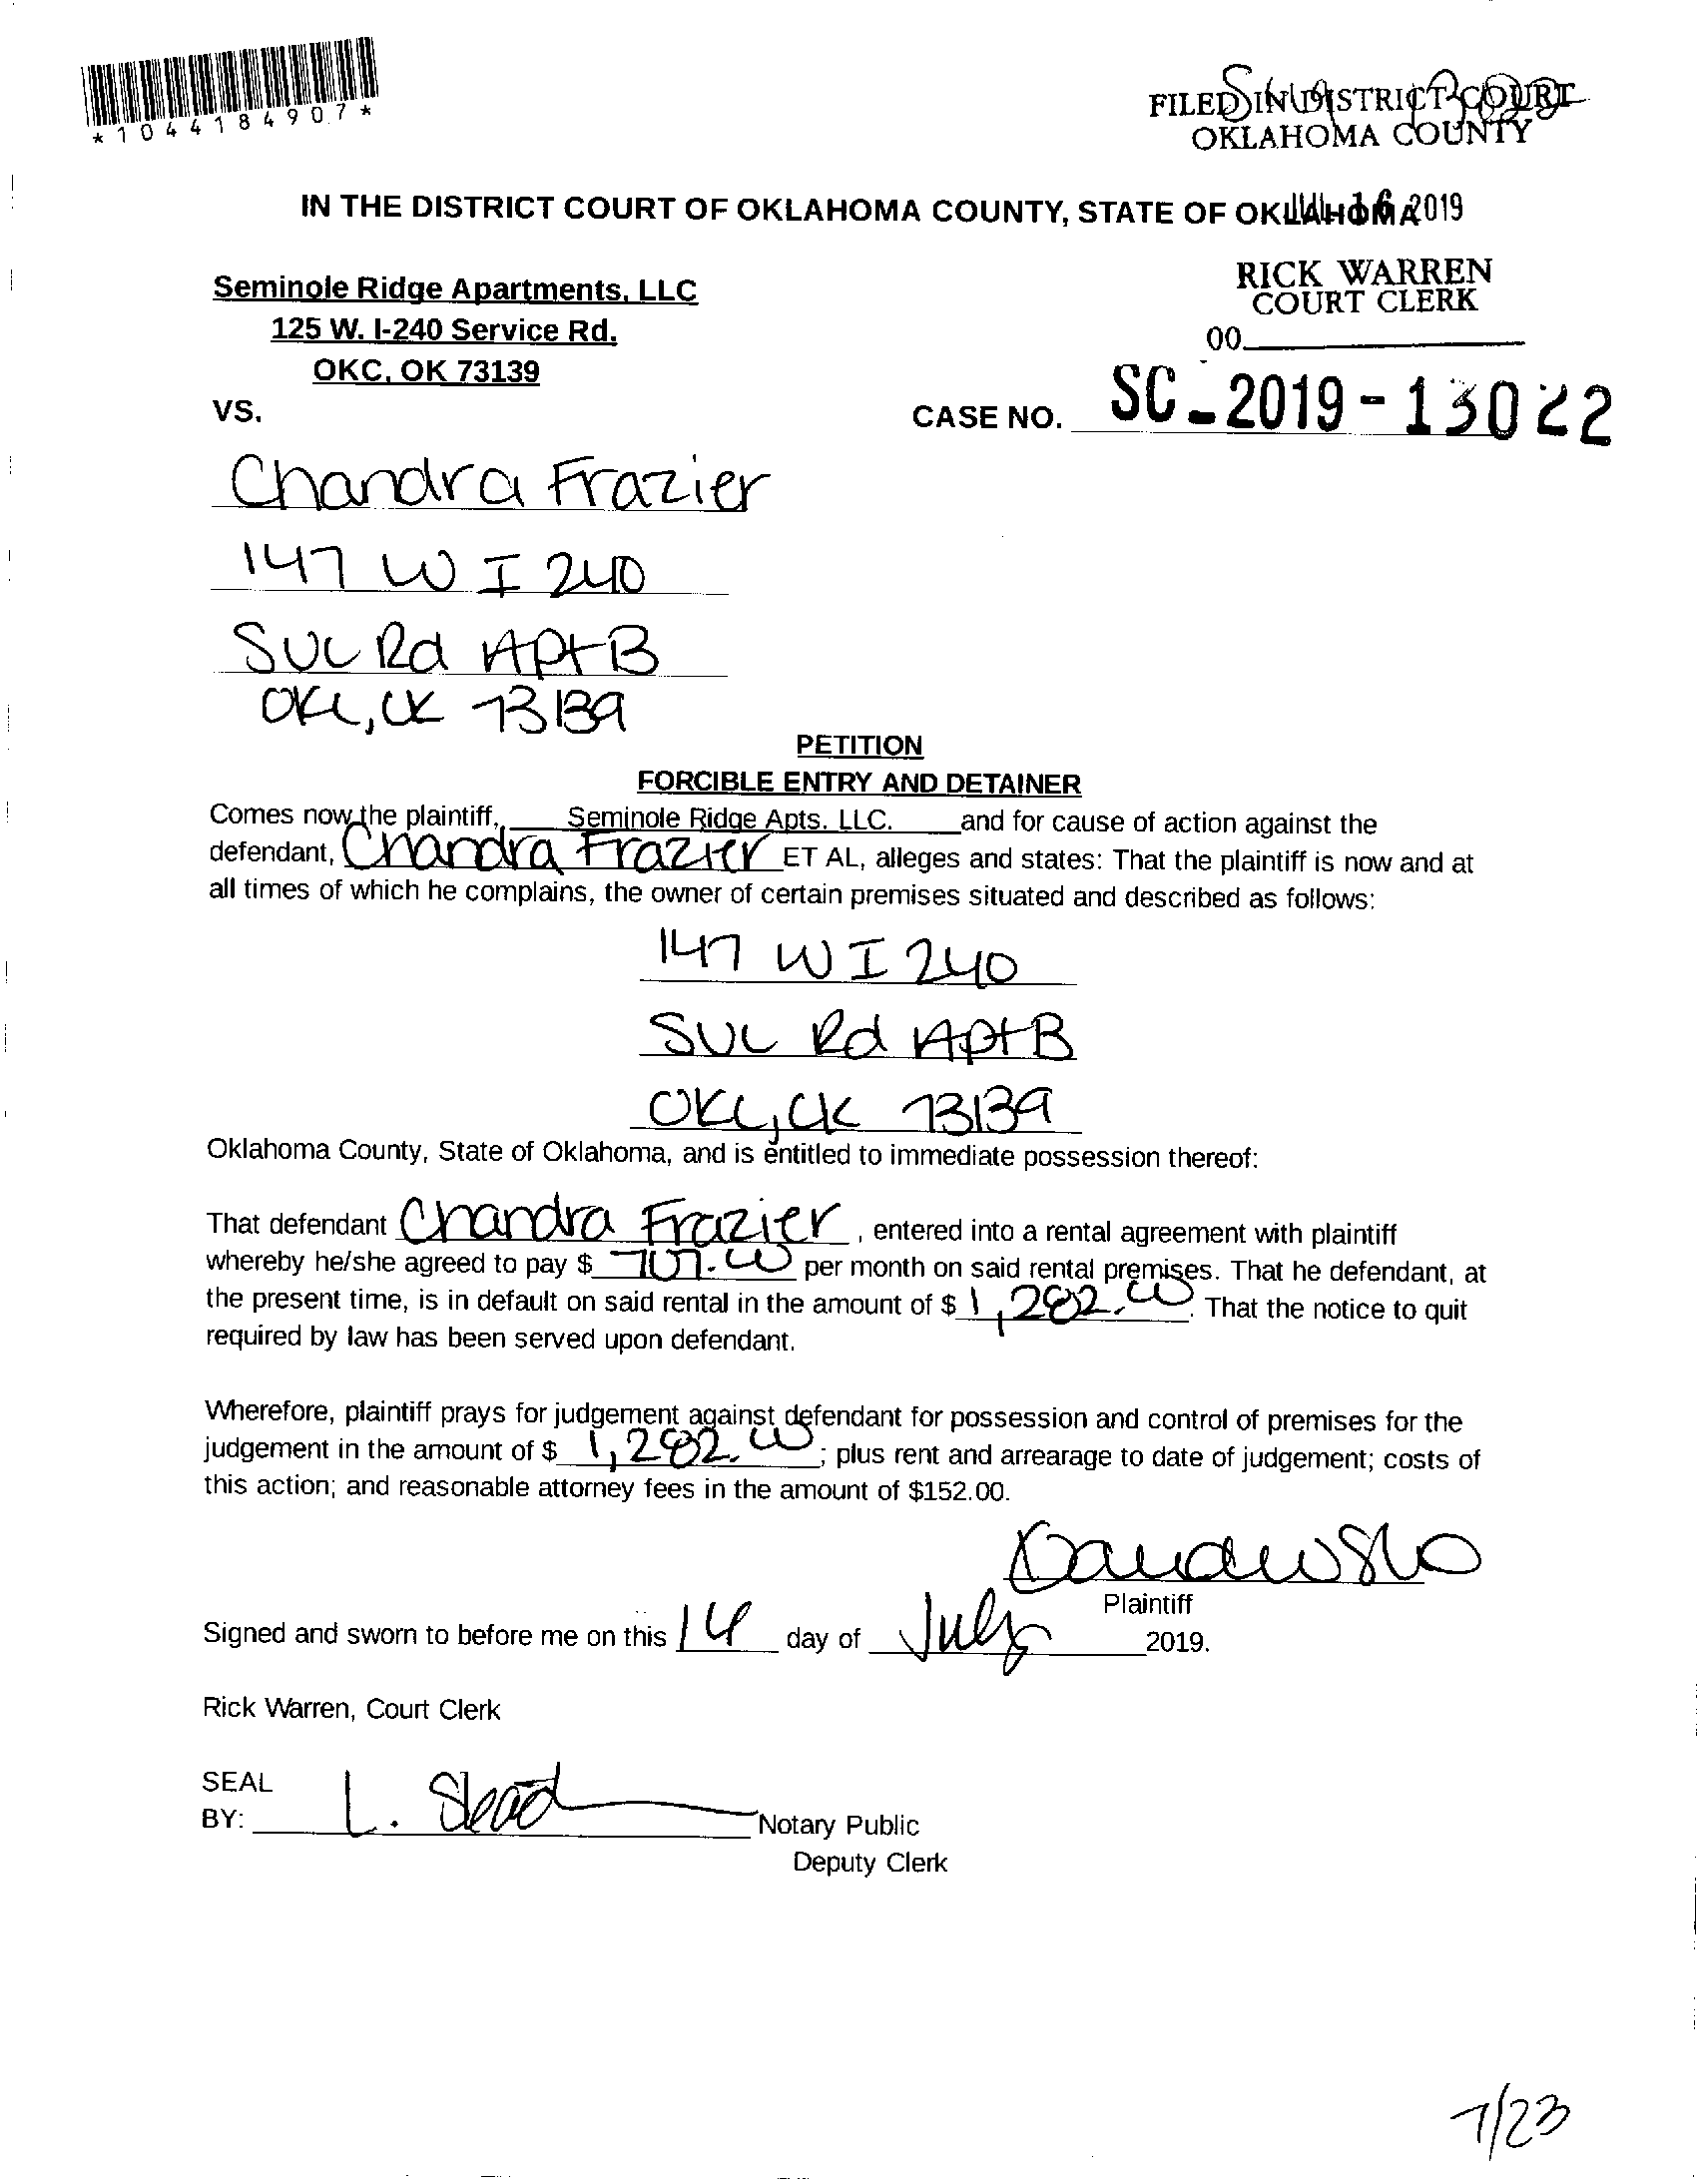 *1044184907*
FILED IN DISTRICT COURT
OKLAHOMA COUNTY
IN THE DISTRICT COURT OF OKLAHOMA COUNTY, STATE OF OKLAHOMA
16 2019
RICK WARREN
COURT CLERK
00
Seminole Ridge Apartments, LLC
125 W. I-240 Service Rd.
OKC, OK 73139
VS.
CASE NO. SC-2019-13022
Chandra Frazier
147 W I 240
SVC Rd Apt B
OKC, OK 73139
PETITION
FORCIBLE ENTRY AND DETAINER
Comes now the plaintiff, Seminole Ridge Apts. LLC. and for cause of action against the
defendant, Chandra Frazier ET AL, alleges and states: That the plaintiff is now and at
all times of which he complains, the owner of certain premises situated and described as follows:
147 W I 240
SVC Rd Apt B
OKC, OK 73139
Oklahoma County, State of Oklahoma, and is entitled to immediate possession thereof:
That defendant Chandra Frazier, entered into a rental agreement with plaintiff
whereby he/she agreed to pay $ per month on said rental premises. That he defendant, at
the present time, is in default on said rental in the amount of $ 1,282.00. That the notice to quit
required by law has been served upon defendant.
Wherefore, plaintiff prays for judgement against defendant for possession and control of premises for the
judgement in the amount of $ 1,282.00; plus rent and arrearage to date of judgement; costs of
this action; and reasonable attorney fees in the amount of $152.00.
Plaintiff
Signed and sworn to before me on this day of July 2019.
Rick Warren, Court Clerk
SEAL
BY: L. Notary Public
Deputy Clerk
7/23